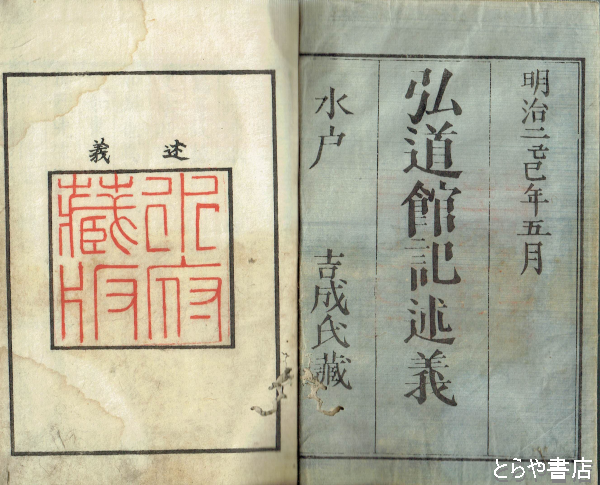 明治二己巳年五月
弘道館記述義
水戸 吉成氏藏
述義
水府
藏版
とらや書店